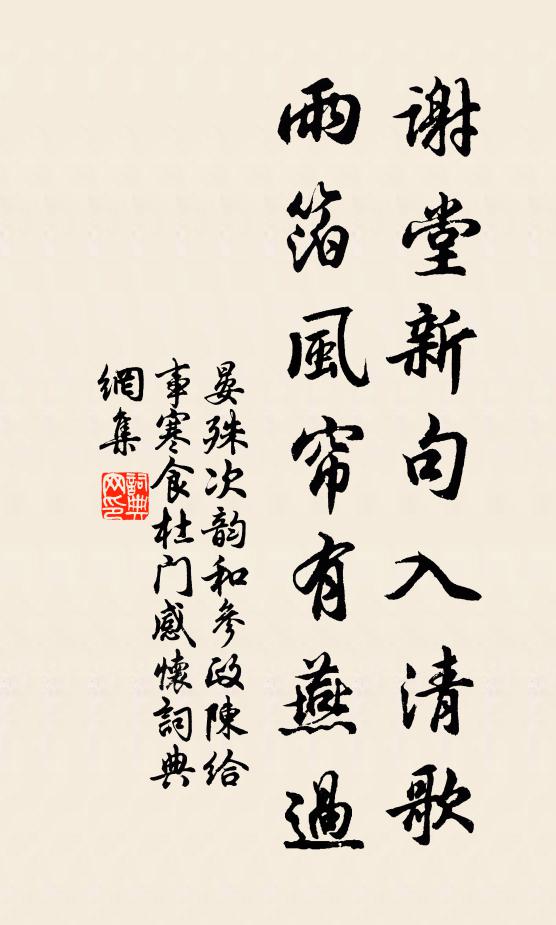 謝堂新句入清歌
雨箔風帘有燕過
晏殊次韵和參政陳給
事寒食杜門感懷詞典
網集
詞典
网印